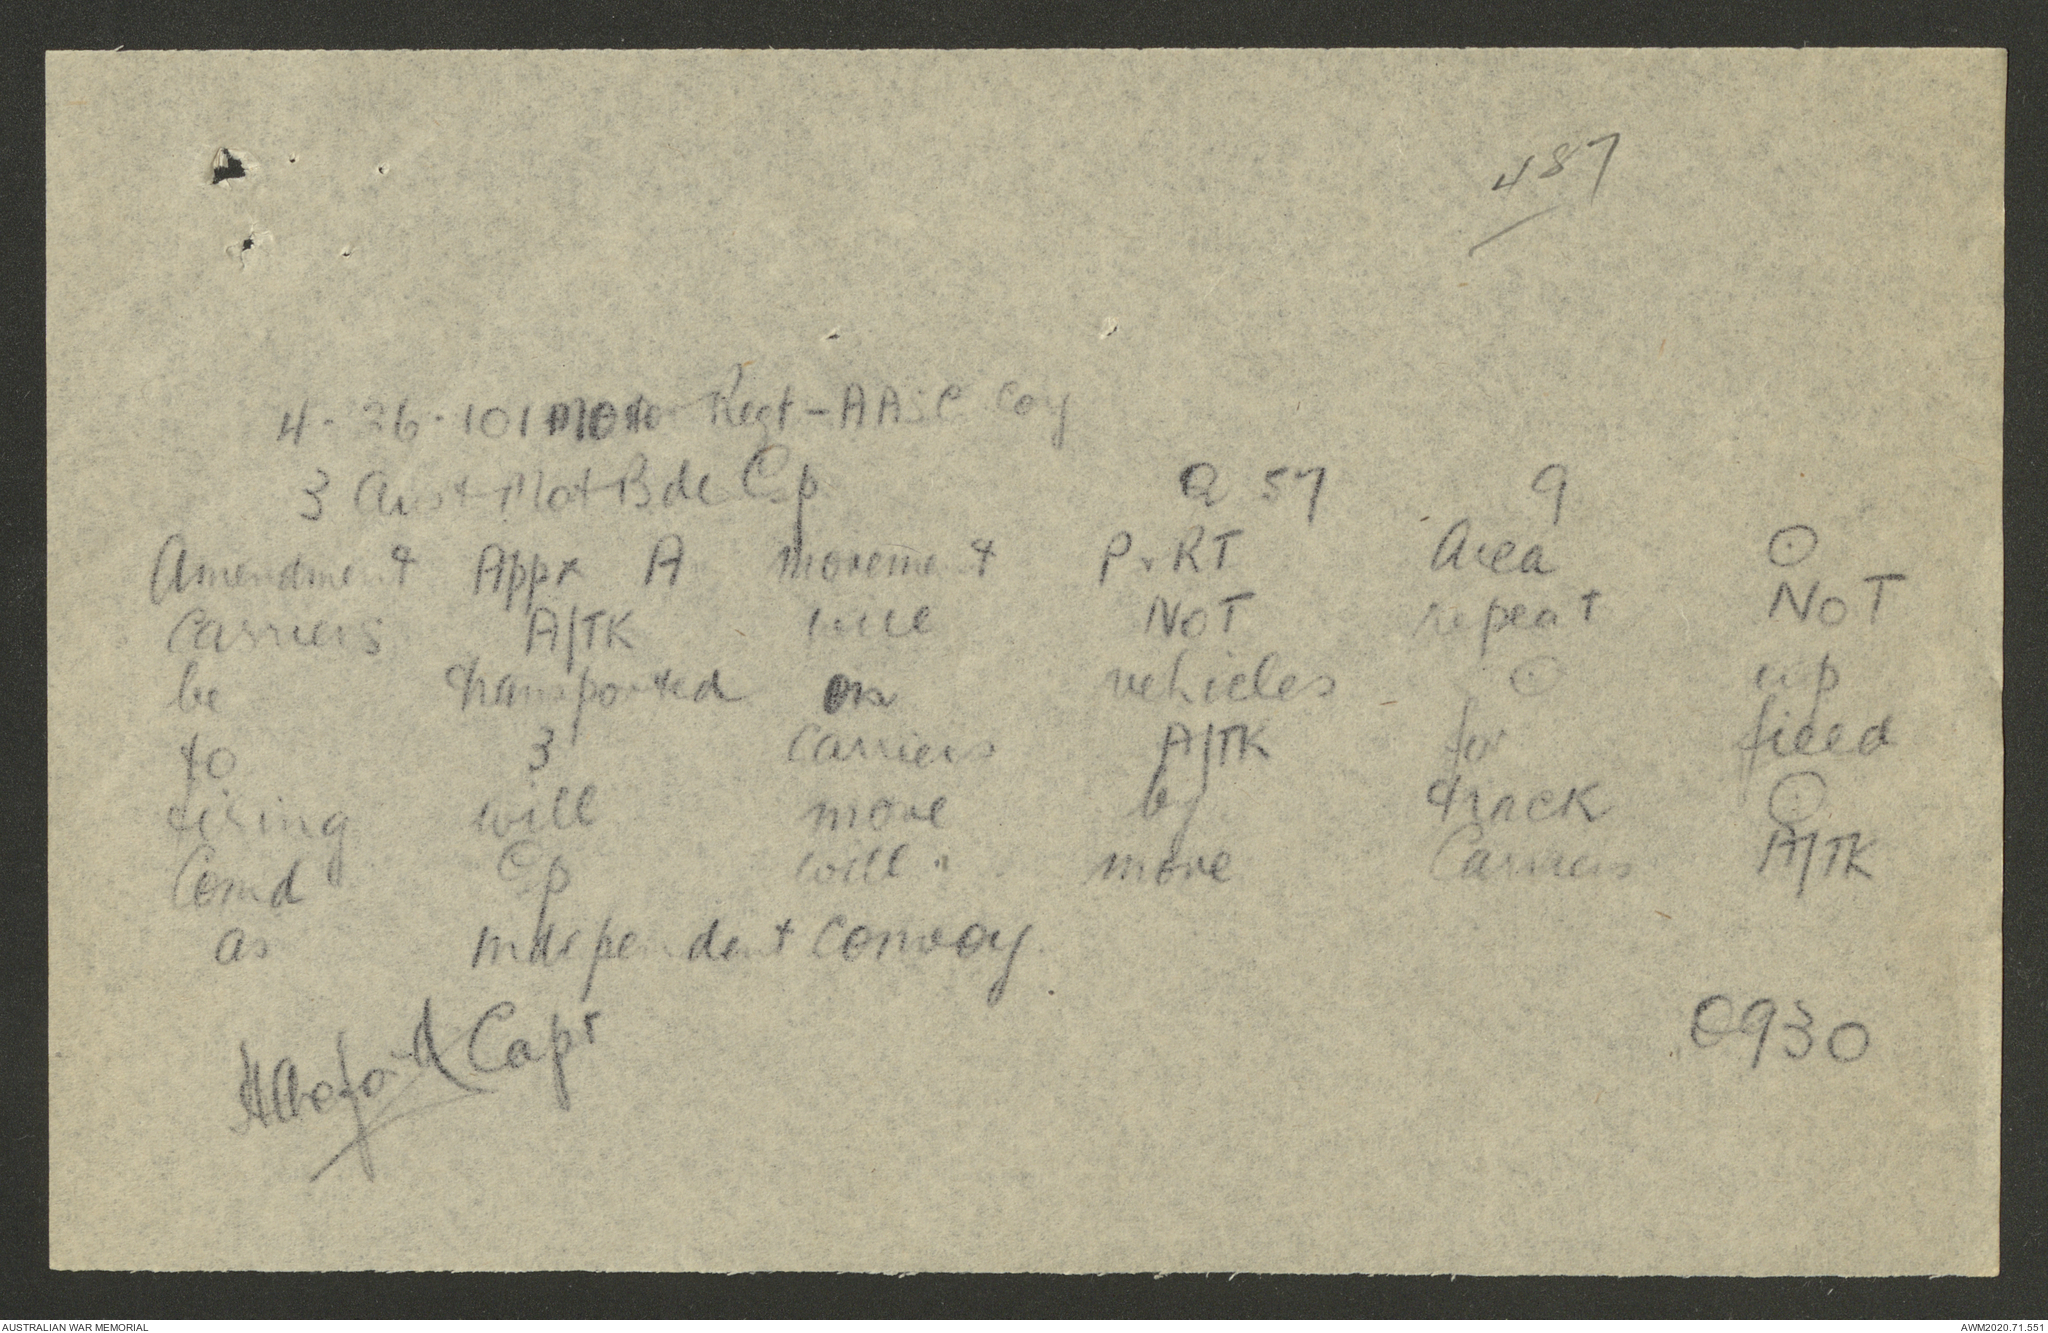 487
4. 26. 101 Motor Regt - AASC Coy
3 Aust Mot Bde Gp Q 57 9
Amendment Appx A movement P.RT Area ⊙
Carriers A/TK will NOT repeat NOT
be transported on vehicles ⊙ up
to 3 carriers A/TK for field
firing will move by track ⊙
Comd Gp will move Carriers A/TK
as independent convoy.
Capt
0930
AUSTRALIAN WAR MEMORIAL
AWM2020.71.551